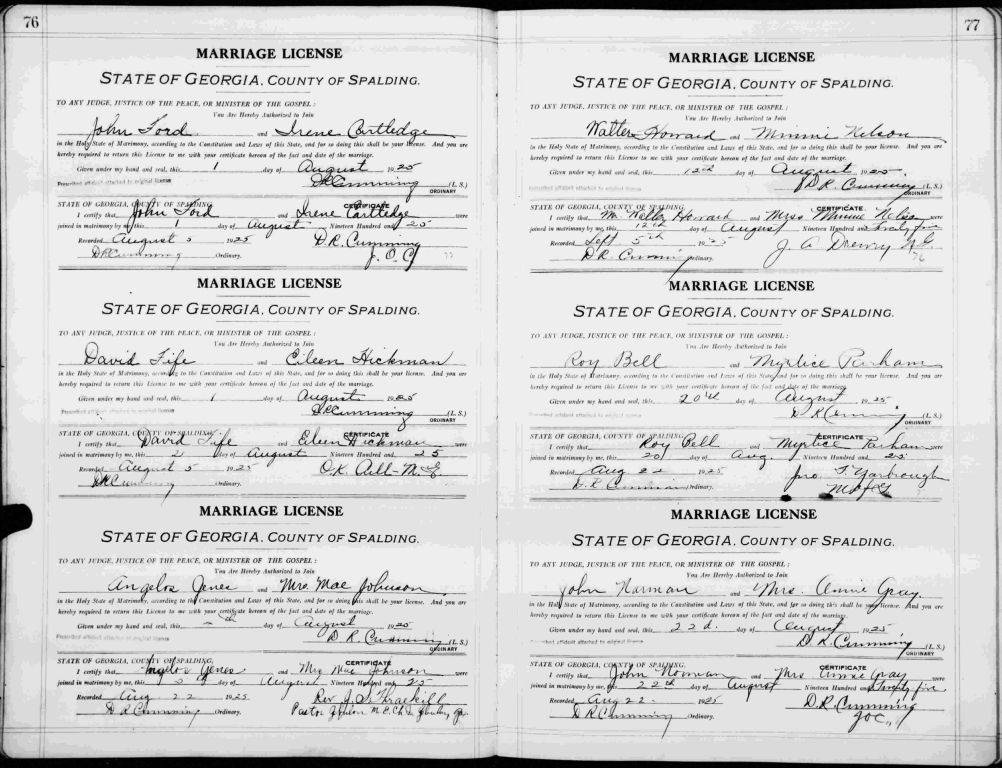 76
MARRIAGE LICENSE
STATE OF GEORGIA, COUNTY OF SPALDING.
TO ANY JUDGE, JUSTICE OF THE PEACE, OR MINISTER OF THE GOSPEL:
You Are Hereby Authorized to Join
John Ford and Irene Cartledge
in the Holy State of Matrimony, according to the Constitution and Laws of this State, and for so doing this shall be your license. And you are
hereby required to return this License to me with your certificate hereon of the fact and date of the marriage.
Given under my hand and seal, this 1 day of August 1925
Prescribed affidavit attached to original license DRCumming (L. S.)
ORDINARY
STATE OF GEORGIA, COUNTY OF SPALDING. CERTIFICATE
I certify that John Ford and Irene Cartledge were
joined in matrimony by me, this 1 day of August Nineteen Hundred and 25
Recorded August 5 1925 D.R. Cumming
DRCumming Ordinary. J. O. C
MARRIAGE LICENSE
STATE OF GEORGIA, COUNTY OF SPALDING.
TO ANY JUDGE, JUSTICE OF THE PEACE, OR MINISTER OF THE GOSPEL:
You Are Hereby Authorized to Join
David Fife and Eileen Hickman
in the Holy State of Matrimony, according to the Constitution and Laws of this State, and for so doing this shall be your license. And you are
hereby required to return this License to me with your certificate hereon of the fact and date of the marriage.
Given under my hand and seal, this 1 day of August 1925
Prescribed affidavit attached to original license DRCumming (L. S.)
ORDINARY
STATE OF GEORGIA, COUNTY OF SPALDING. CERTIFICATE
I certify that David Fife and Eileen Hickman were
joined in matrimony by me, this 2 day of August Nineteen Hundred and 25
Recorded August 5 1925
DRCumming Ordinary.
MARRIAGE LICENSE
STATE OF GEORGIA, COUNTY OF SPALDING.
TO ANY JUDGE, JUSTICE OF THE PEACE, OR MINISTER OF THE GOSPEL:
You Are Hereby Authorized to Join
Angelos Jones and Mrs. Mae Johnson
in the Holy State of Matrimony, according to the Constitution and Laws of this State, and for so doing this shall be your license. And you are
hereby required to return this License to me with your certificate hereon of the fact and date of the marriage.
Given under my hand and seal, this day of August 1925
Prescribed affidavit attached to original license D. R. Cumming (L. S.)
ORDINARY
STATE OF GEORGIA, COUNTY OF SPALDING. CERTIFICATE
I certify that Angelos Jones and Mrs Mae Johnson were
joined in matrimony by me, this day of August Nineteen Hundred and 25
Recorded Aug 22 1925 Rev J.
D R Cumming Ordinary. Pastor M. E. Ch.
77
MARRIAGE LICENSE
STATE OF GEORGIA, COUNTY OF SPALDING.
TO ANY JUDGE, JUSTICE OF THE PEACE, OR MINISTER OF THE GOSPEL:
You Are Hereby Authorized to Join
Walter Howard and Minnie Nelson
in the Holy State of Matrimony, according to the Constitution and Laws of this State, and for so doing this shall be your license. And you are
hereby required to return this License to me with your certificate hereon of the fact and date of the marriage.
Given under my hand and seal, this 12th day of August 1925.
Prescribed affidavit attached to original license D. R. Cumming (L. S.)
ORDINARY
STATE OF GEORGIA, COUNTY OF SPALDING. CERTIFICATE
I certify that Mr Walter Howard and Miss Minnie Nelson were
joined in matrimony by me, this 12th day of August Nineteen Hundred and twenty five
Recorded Sept 5th 1925 J. A Drewry
D.R. Cumming Ordinary. 76
MARRIAGE LICENSE
STATE OF GEORGIA, COUNTY OF SPALDING.
TO ANY JUDGE, JUSTICE OF THE PEACE, OR MINISTER OF THE GOSPEL:
You Are Hereby Authorized to Join
Roy Bell and Myrtice Parham
in the Holy State of Matrimony, according to the Constitution and Laws of this State, and for so doing this shall be your license. And you are
hereby required to return this License to me with your certificate hereon of the fact and date of the marriage.
Given under my hand and seal, this 20th day of August 1925
Prescribed affidavit attached to original license D R Cumming (L. S.)
ORDINARY
STATE OF GEORGIA, COUNTY OF SPALDING. CERTIFICATE
I certify that Roy Bell and Myrtice Parham were
joined in matrimony by me, this 20 day of Aug. Nineteen Hundred and 25
Recorded Aug 22 1925 Jno. F. Yarbrough
D. R Cumming Ordinary. M of G
MARRIAGE LICENSE
STATE OF GEORGIA, COUNTY OF SPALDING.
TO ANY JUDGE, JUSTICE OF THE PEACE, OR MINISTER OF THE GOSPEL:
You Are Hereby Authorized to Join
John Norman and Mrs. Annie Gray
in the Holy State of Matrimony, according to the Constitution and Laws of this State, and for so doing this shall be your license. And you are
hereby required to return this License to me with your certificate hereon of the fact and date of the marriage.
Given under my hand and seal, this 22d. day of August 1925
Prescribed affidavit attached to original license D. R. Cumming (L. S.)
ORDINARY
STATE OF GEORGIA, COUNTY OF SPALDING. CERTIFICATE
I certify that John Norman and Mrs Annie Gray were
joined in matrimony by me, this 22th day of August Nineteen Hundred and Twenty five
Recorded Aug 22. 1925 D.R. Cumming
D R Cumming Ordinary. J O C.